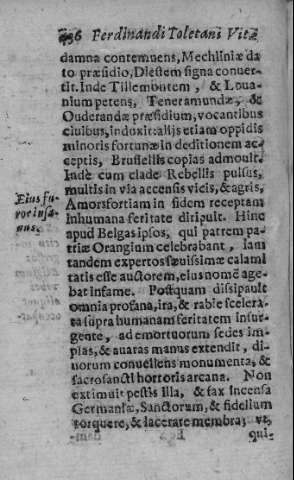 436 Ferdinandi Toletani Vitæ
damna contemnens, Mechliniæ da
to præsidio, Diestem signa conver-
tit. Inde Tillemontem, & Lova-
nium petens, Teneramundæ, &
Ouderandæ præsidium, vocantibus
civibus, induxit: alijs etiam oppidis
minoris fortunæ in deditionem ac-
ceptis, Brusellis copias admovit.
Inde cum clade Rebellis pulsus,
multis in via accensis vicis, & agris,
Amorsfortiam in fidem receptam
Inhumana feritate diripuit. Hinc
apud Belgas ipsos, qui patrem pa-
triæ Orangium celebrabant, iam
tandem expertos sævissimæ calami
tatis esse auctorem, eius nomē age-
bat infame. Postquam dissipavit
omnia profana, ira, & rabie scelera-
ta supra humanam feritatem insur-
gente, ad emortuorum sedes im-
pias, & avaras manus extendit, di-
vorum convellens monumenta, &
sacrosancti horroris arcana. Non
extimuit pestis illa, & fax incensa
Germaniæ, Sanctorum, & fidelium
torquere, & lacerare membra; vt,
qui-
Eius fu-
ror insa-
nus.